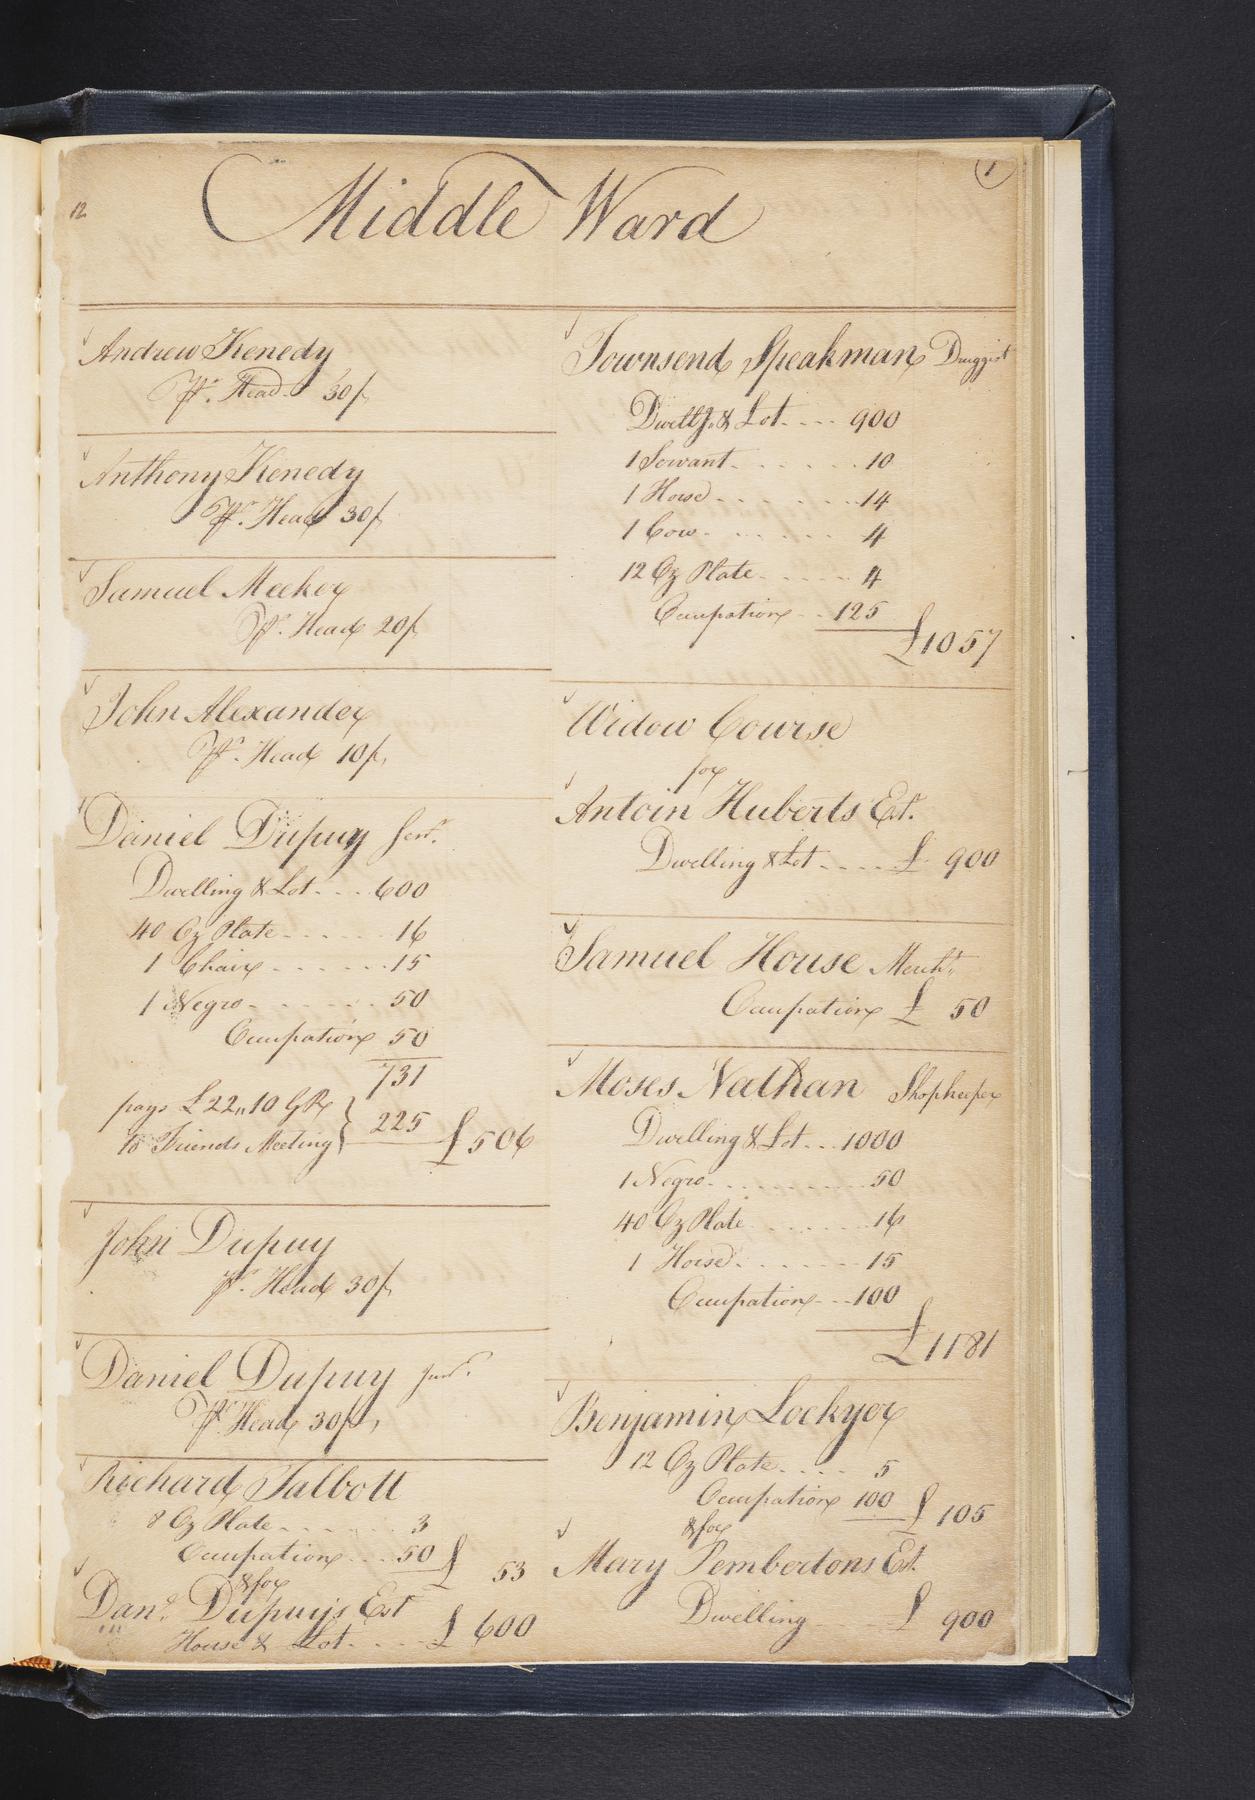 12
1
Middle Ward
Andrew Kenedy
Pr. Head 30/
Anthony Kenedy
Pr. Head 30/
Samuel Meeker
Pr. Head 20/
John Alexander
Pr. Head 10/
Daniel Dupuy Senr.
Dwelling & Lot - - - 600
40 Oz Plate - - - - - - 16
1 Chair - - - - - - - 15
1 Negro - - - - - - - - 50
Occupation 50
731
pays £22,,10 G Rt
to Friends Meeting } 225 £506
John Dupuy
Pr. Head 30/
Daniel Dupuy Junr.
Pr. Head 30/
Richard Talbott
8 Oz Plate - - - - - - - 3
Occupation - - - 50 £ 53
& for
Danl. Dupuy's Est
House & Lot - - - - £ 600
Townsend Speakman Druggist
Dwellg. & Lot - - - - 900
1 Servant - - - - - - - 10
1 Horse - - - - - - - - 14
1 Cow - - - - - - - 4
12 Oz Plate - - - - - 4
Occupation - - 125
£1057
Widow Course
for
Antoin Huberts Est.
Dwelling & Lot - - - - £ 900
Samuel House Mercht.
Occupation £ 50
Moses Nathan Shopkeeper
Dwelling & Lot - - - 1000
1 Negro - - - - - - - - - - 50
40 Oz Plate - - - - - - - 16
1 Horse - - - - - - - - 15
Occupation - - - 100
£1181
Benjamin Lockyer
12 Oz Plate - - - - 5
Occupation 100 £ 105
& for
Mary Pembertons Est.
Dwelling - - - - £ 900